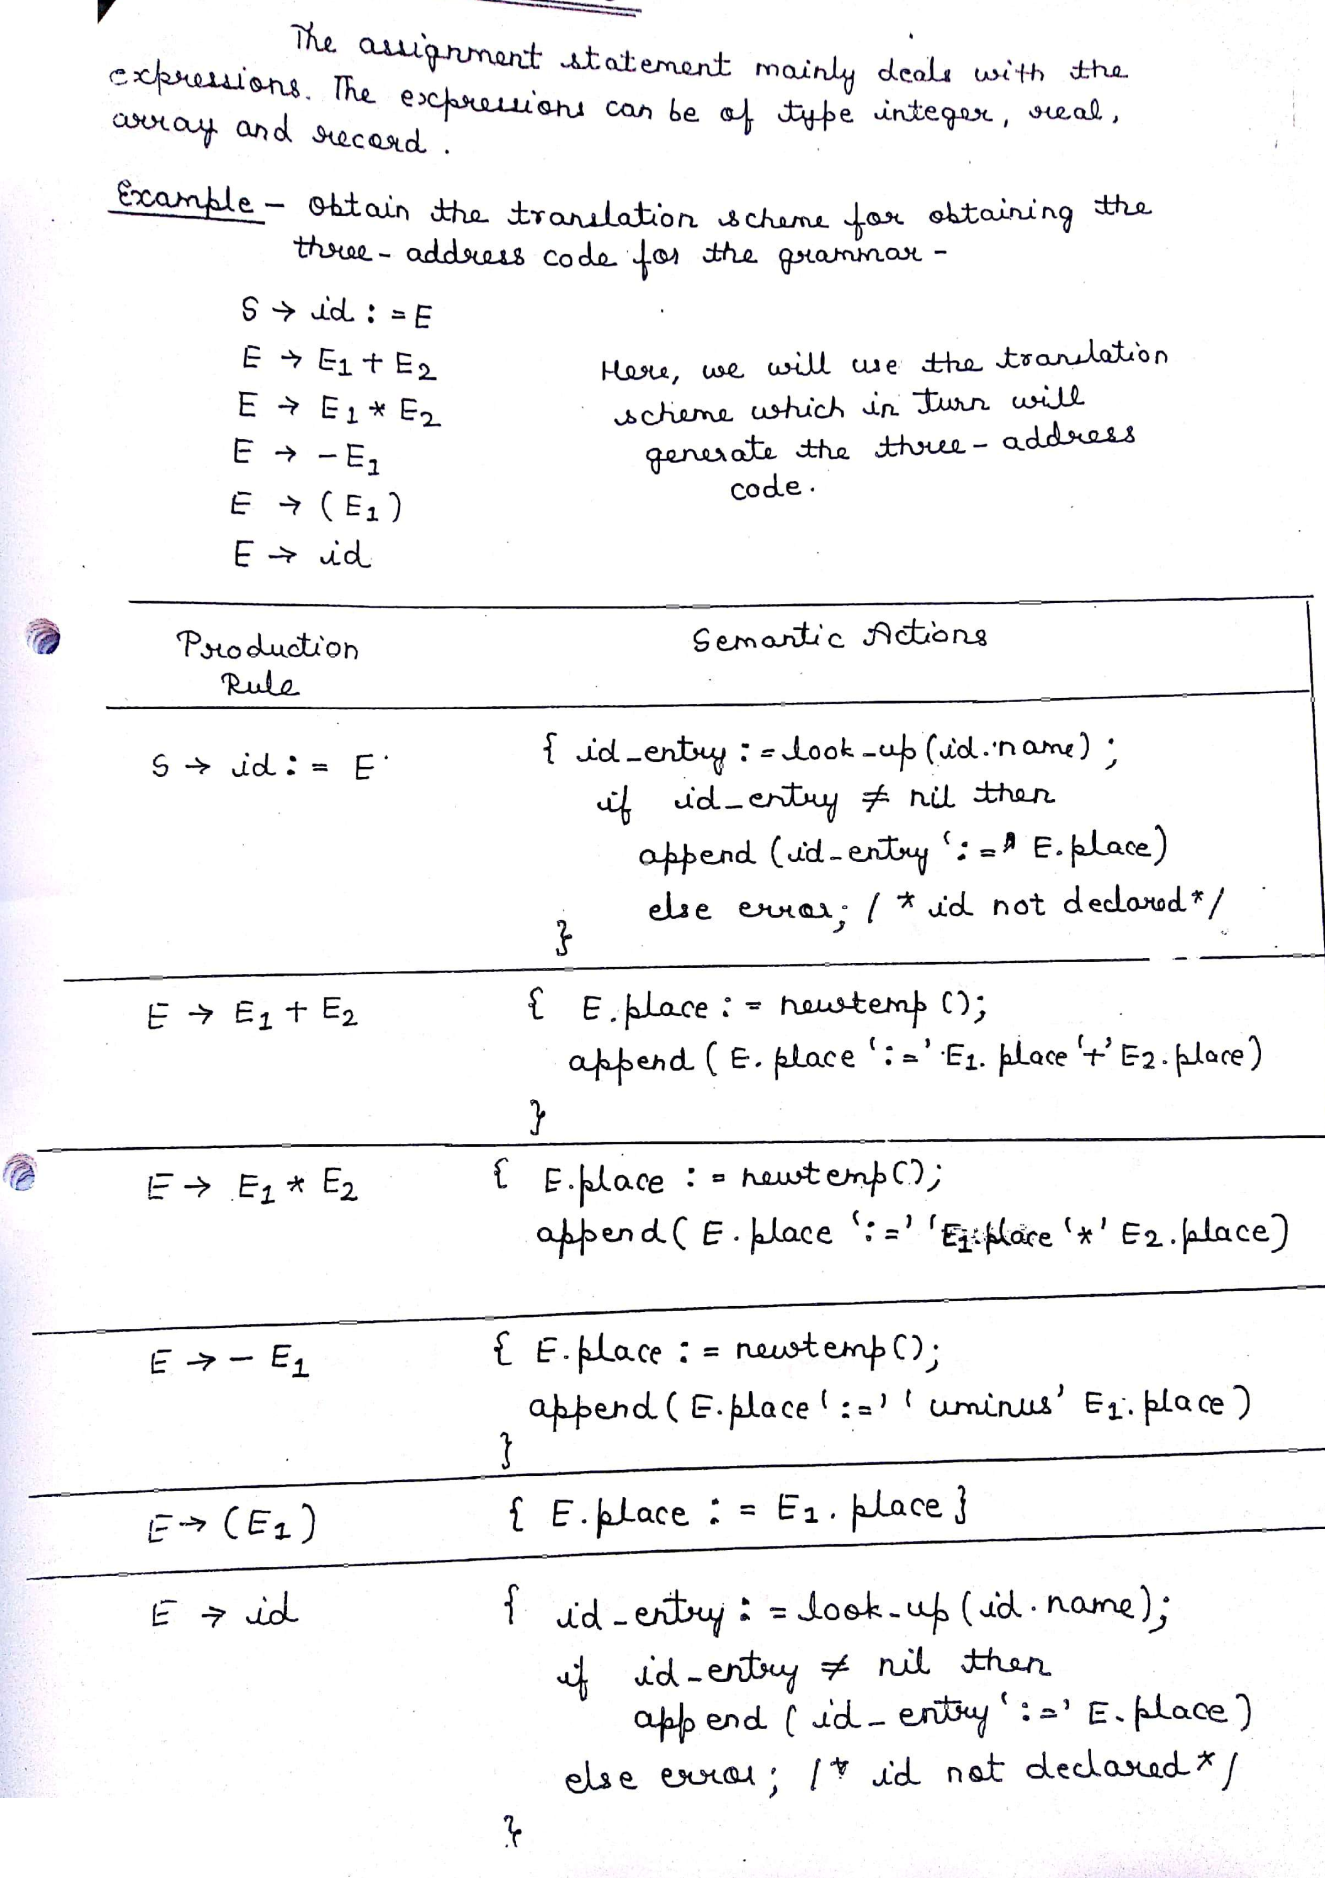 The assignment statement mainly deals with the
expressions. The expressions can be of type integer, real,
array and record.
Example - obtain the translation scheme for obtaining the
three-address code for the grammar -
S → id := E
E → E1 + E2
E → E1 * E2
E → - E1
E → (E1)
E → id
Here, we will use the translation
scheme which in turn will
generate the three-address
code.
Production
Rule
Semantic Actions
S → id := E
{ id_entry := look-up (id.name);
if id_entry ≠ nil then
append (id-entry ':=' E.place)
else error; /* id not declared */
}
E → E1 + E2
{ E.place := newtemp ();
append ( E.place ':=' E1.place '+' E2.place)
}
E → E1 * E2
{ E.place := newtemp();
append( E.place ':=' 'E1.place '*' E2.place)
E → - E1
{ E.place := newtemp();
append ( E.place ':=' 'uminus' E1.place )
}
E → (E1)
{ E.place := E1.place }
E → id
{ id-entry := look-up (id.name);
if id-entry ≠ nil then
append ( id-entry ':=' E.place )
else error; /* id not declared */
}